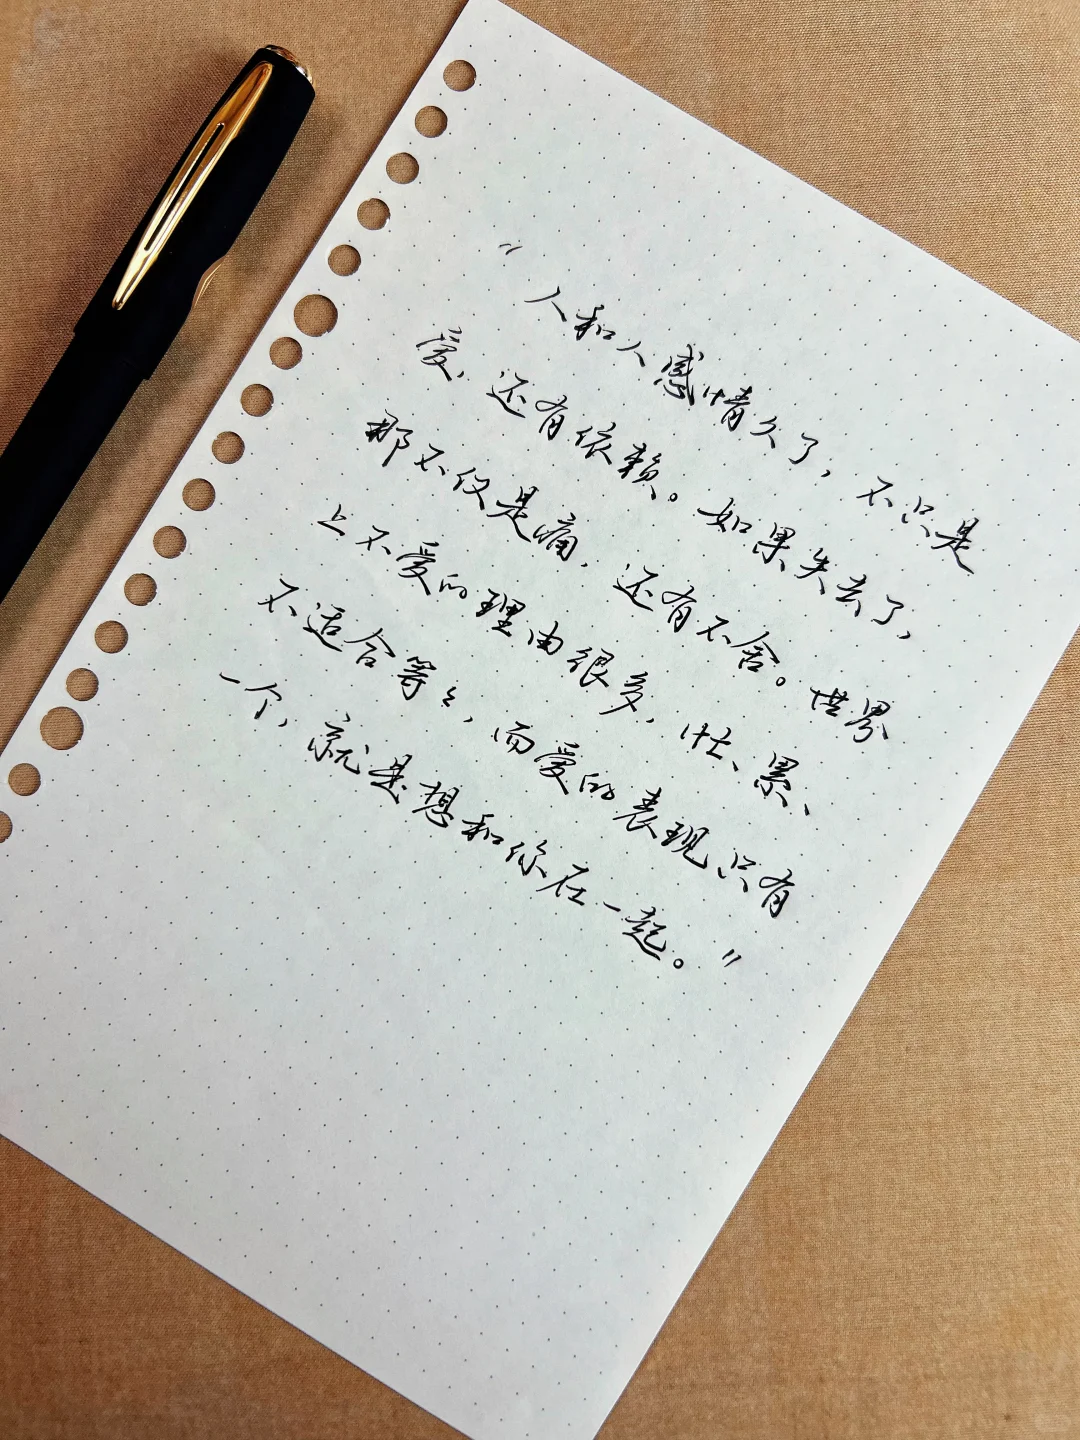 “人和人感情久了，不只是
爱，还有依赖。如果失去了，
那不仅是痛，还有不舍。世界
上不爱的理由很多，忙、累、
不适合等々，而爱的表现只有
一个，就是想和你在一起。”